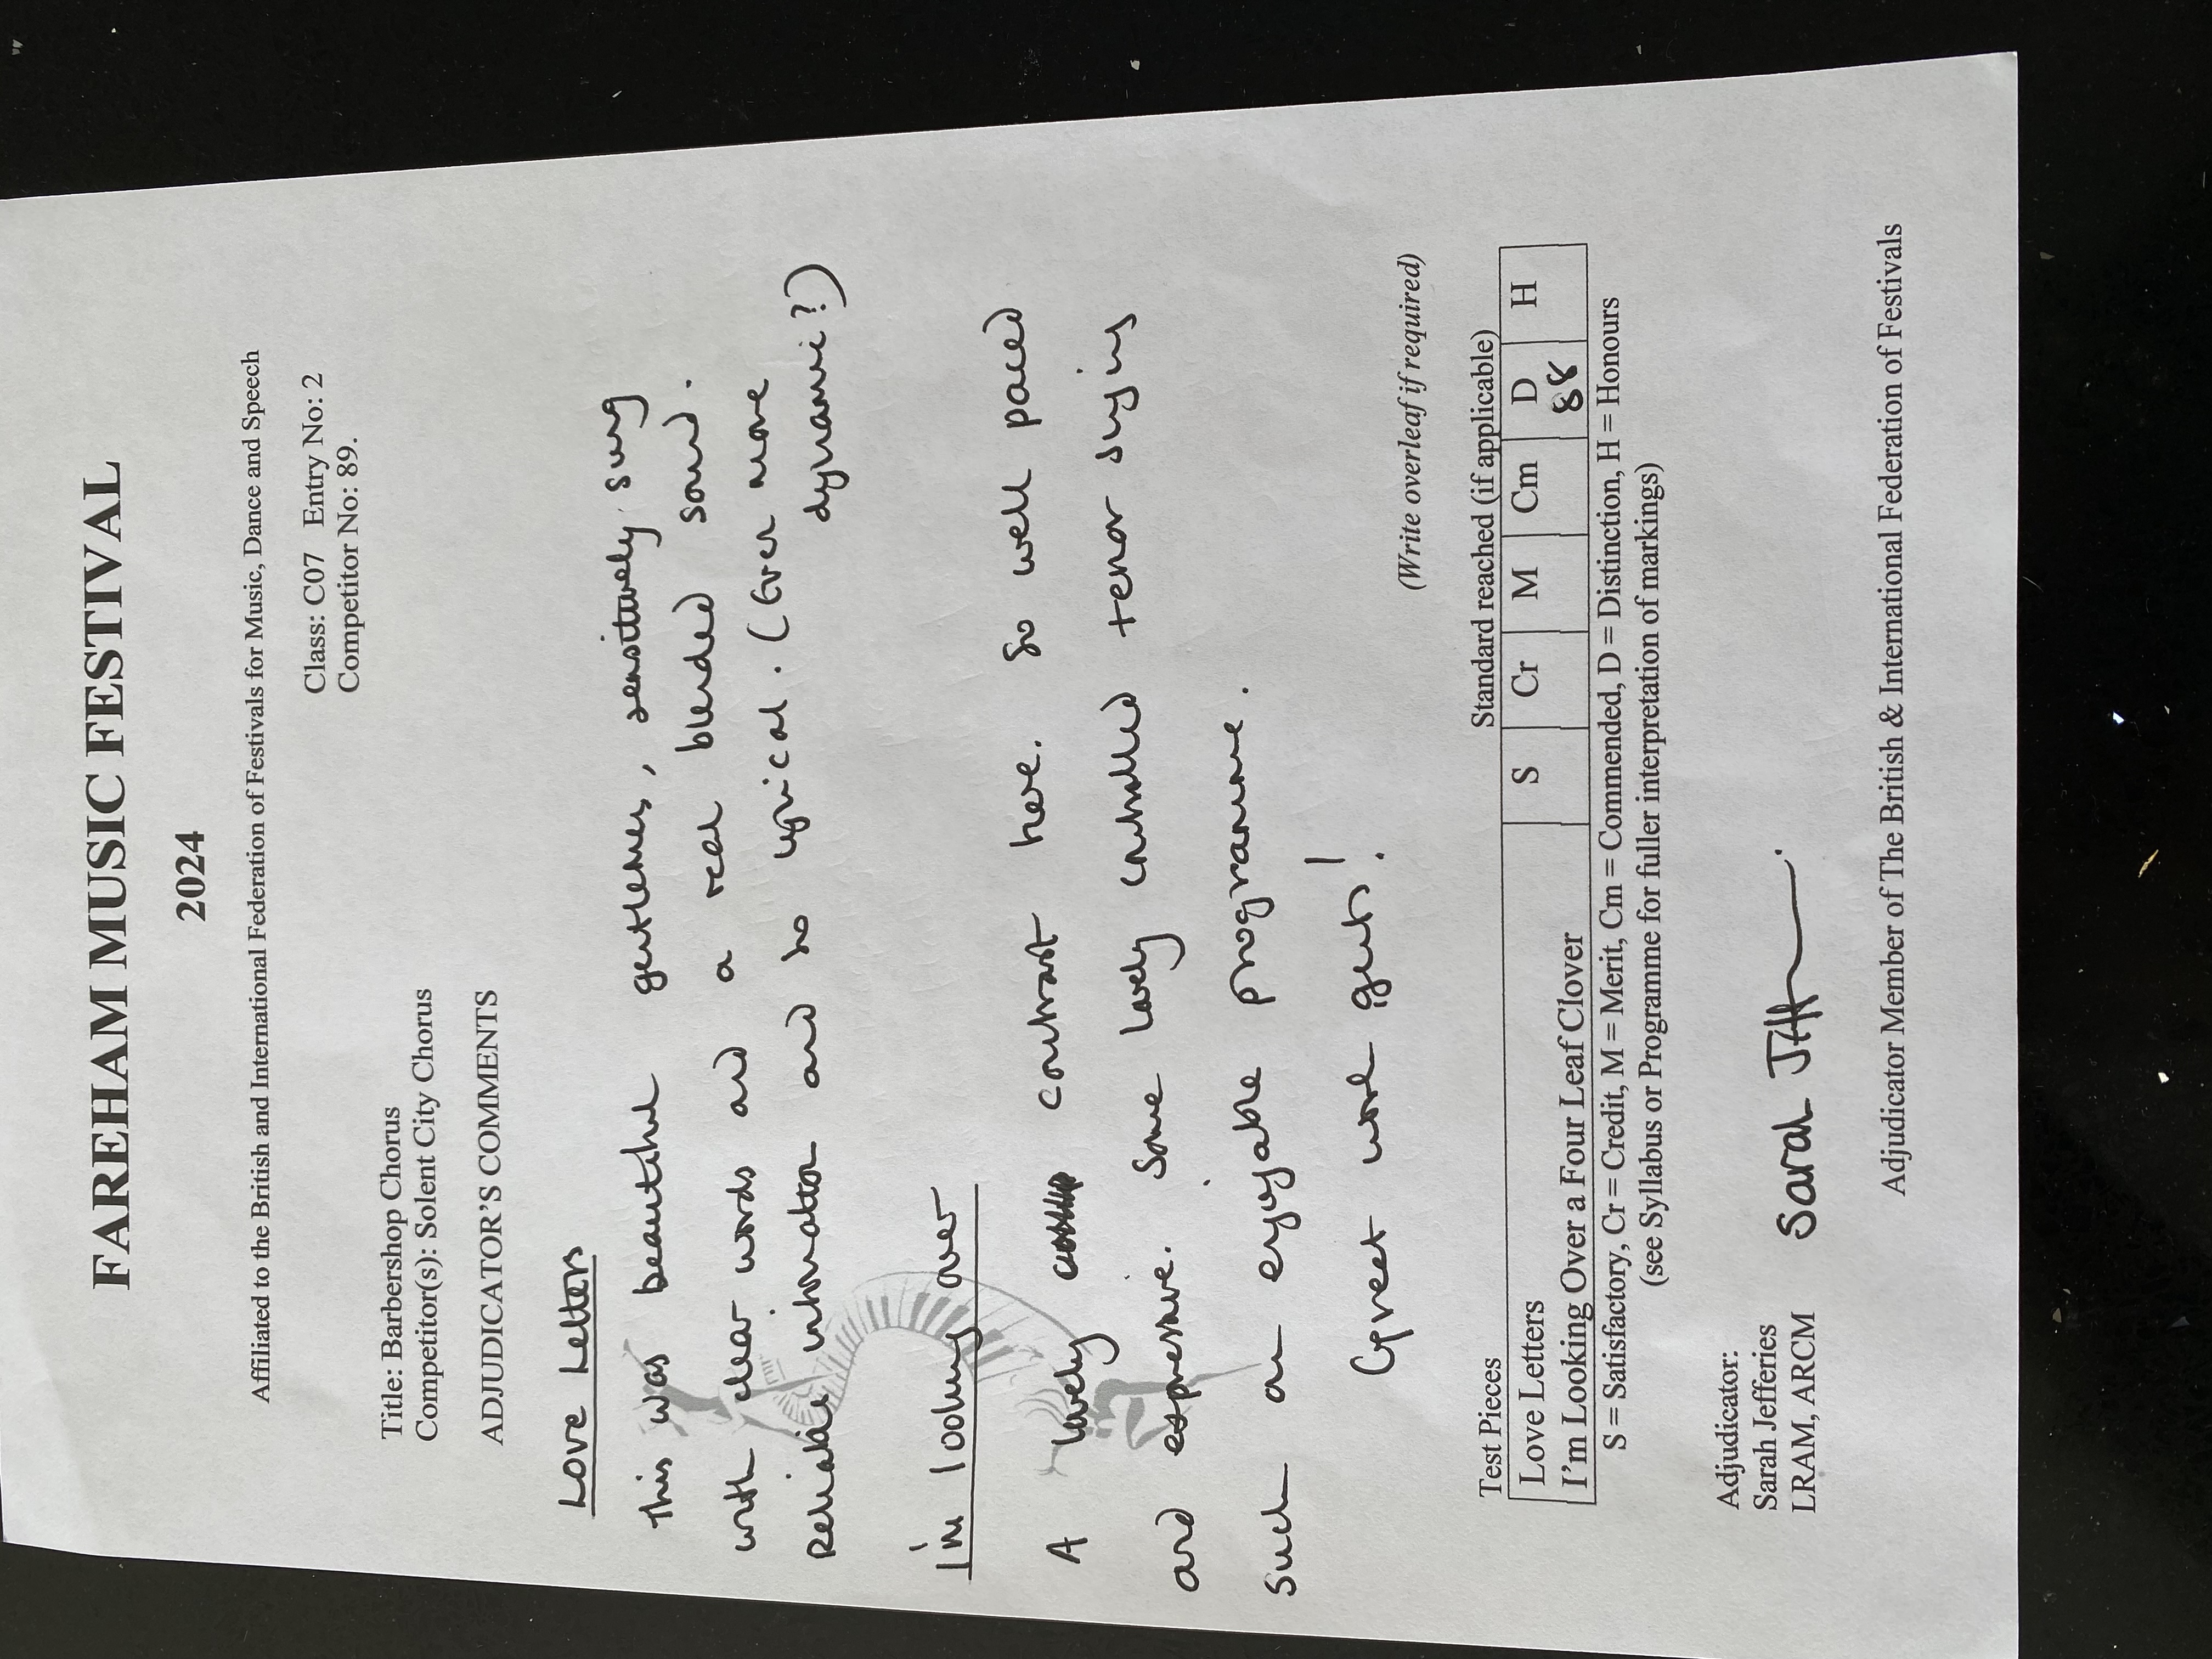 FAREHAM MUSIC FESTIVAL
2024
Affiliated to the British and International Federation of Festivals for Music, Dance and Speech
Class: C07 Entry No: 2
Competitor No: 89.
Title: Barbershop Chorus
Competitor(s): Solent City Chorus
ADJUDICATOR'S COMMENTS
Love Letters
This was beautiful gentlemen, sensitively sung
with clear words and a real blended sound.
Reliable intonation and so lyrical. (Even more
dynamic?)
I'm looking over
A lovely contrast here. So well paced
and expressive. Some lovely controlled tenor singing
Such an enjoyable programme.
Great work gents!
(Write overleaf if required)
Test Pieces
Standard reached (if applicable)
Love Letters S Cr M Cm D H
I'm Looking Over a Four Leaf Clover 88
S = Satisfactory, Cr = Credit, M = Merit, Cm = Commended, D = Distinction, H = Honours
(see Syllabus or Programme for fuller interpretation of markings)
Adjudicator:
Sarah Jefferies
LRAM, ARCM
Sarah
Adjudicator Member of The British & International Federation of Festivals